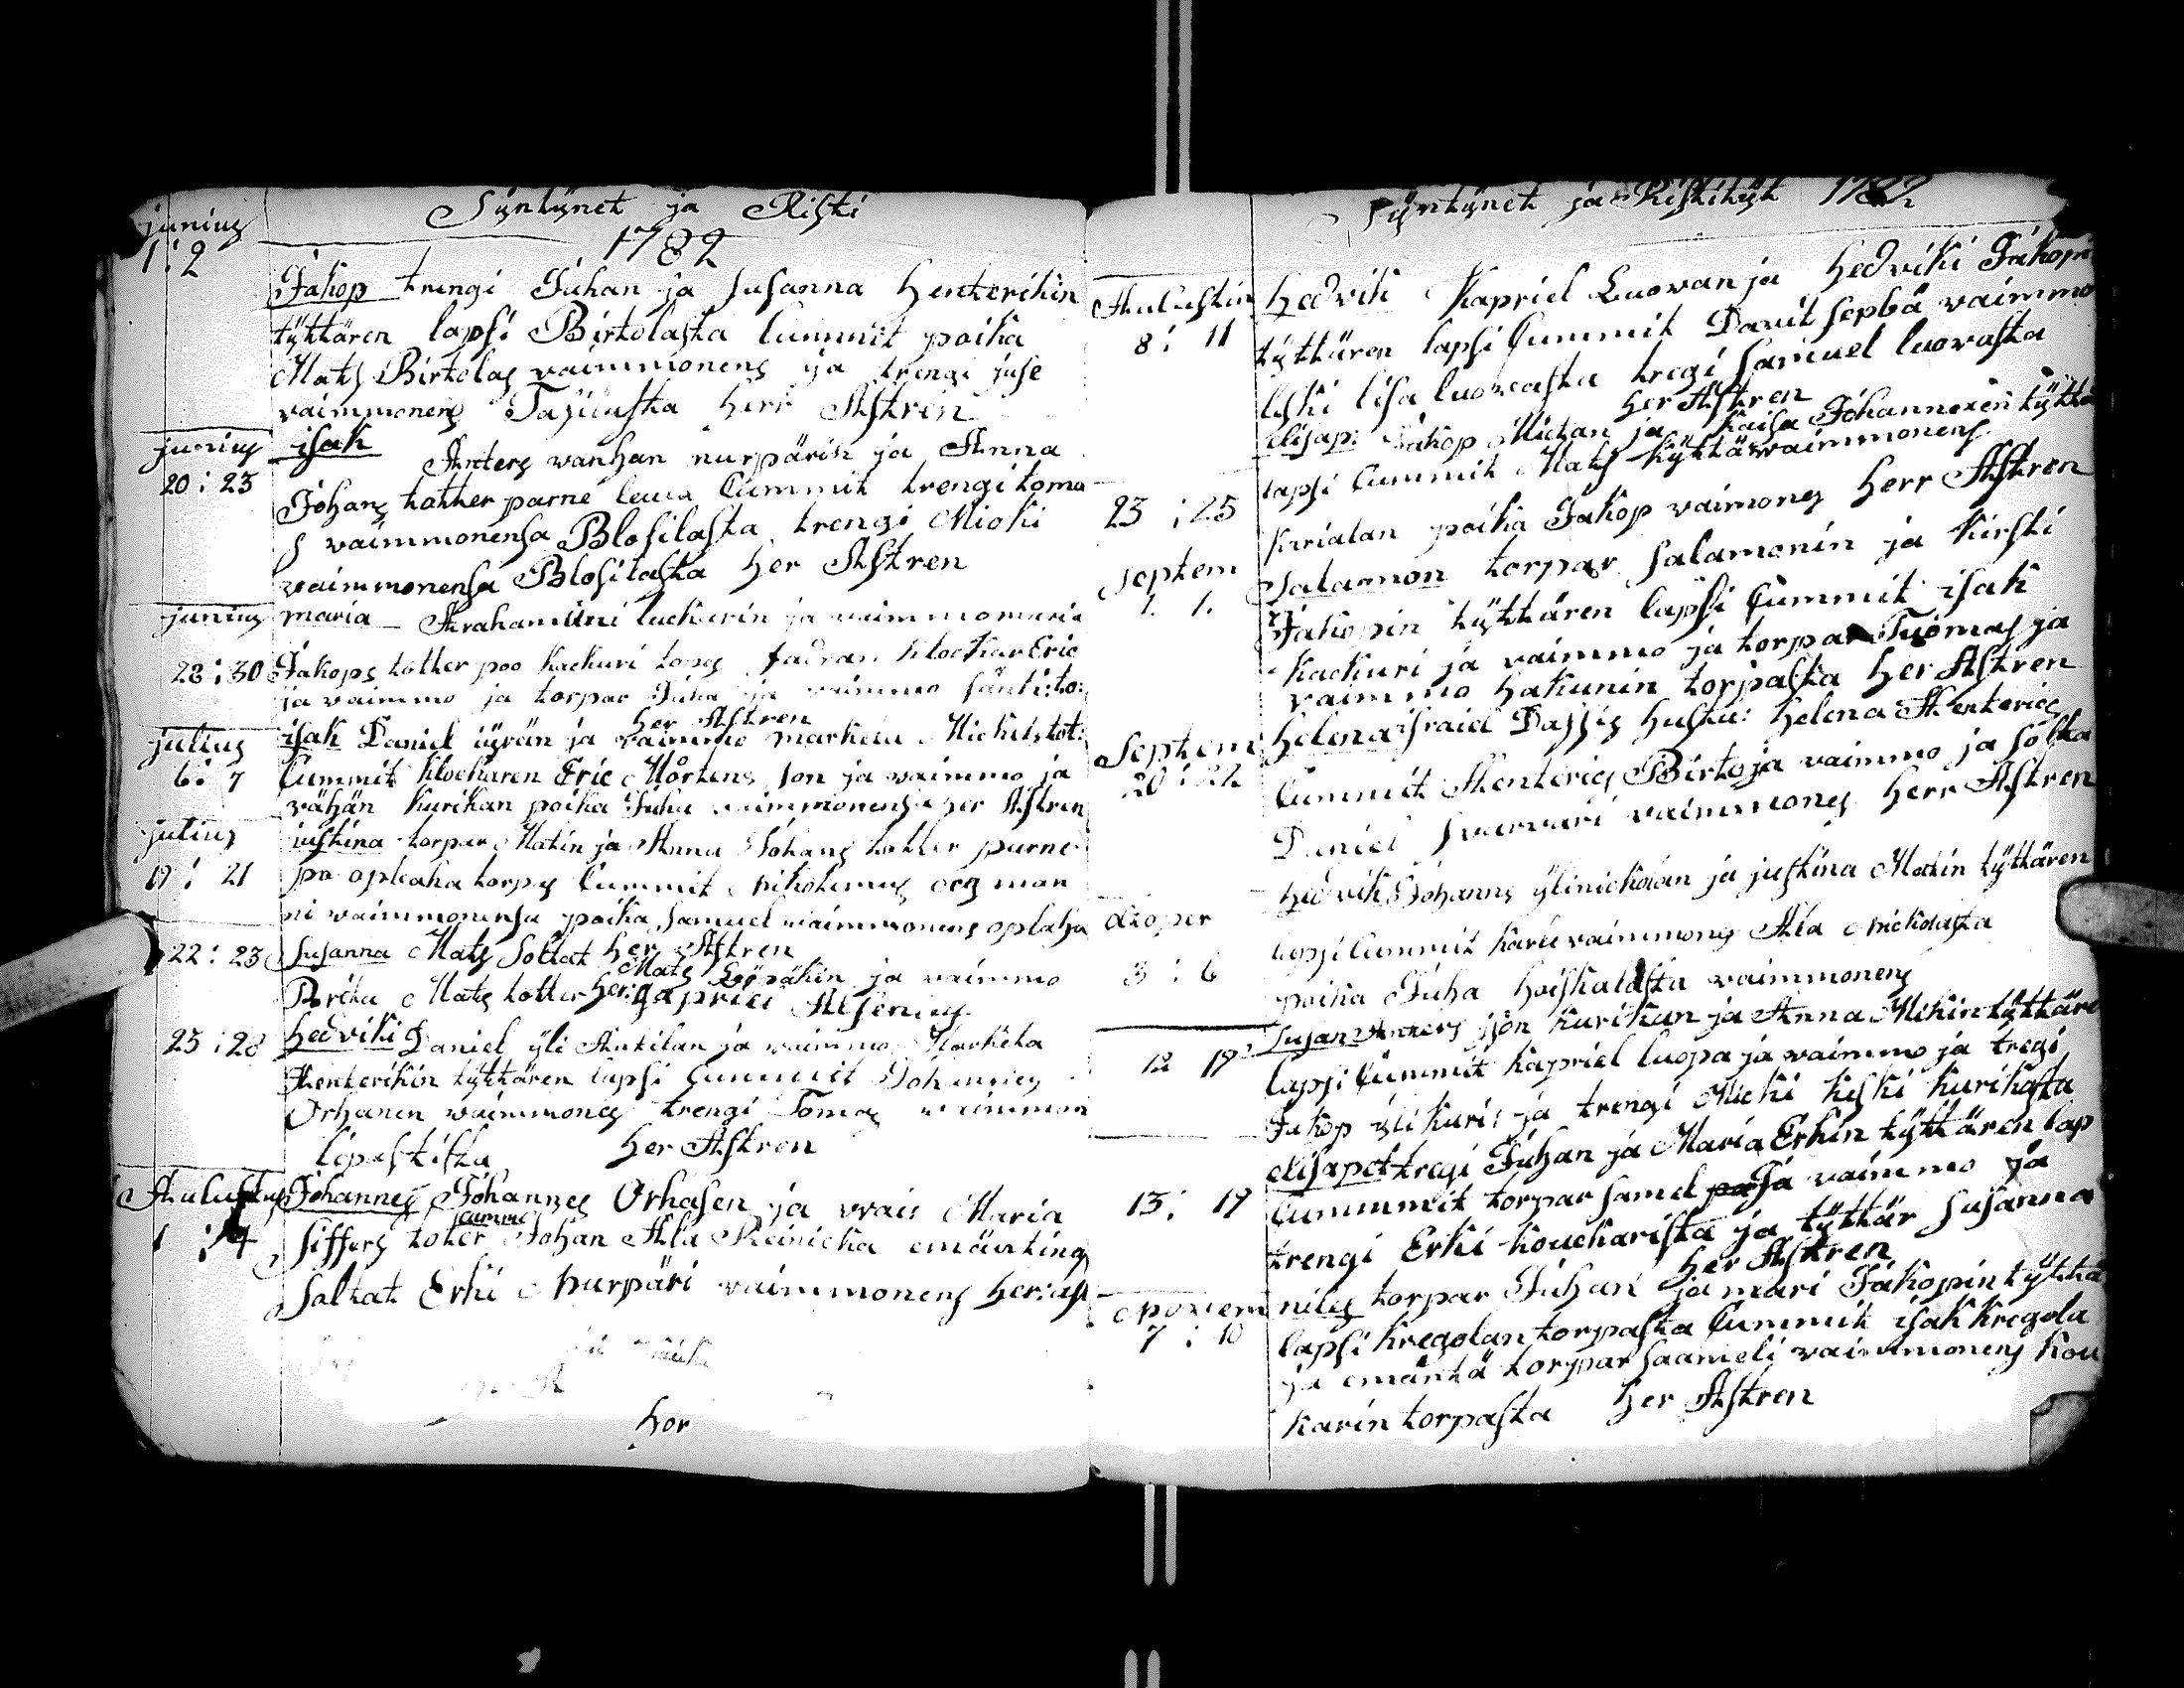 Syntynet ja Risti
1782
junius
1 : 2
Jakop trengi Juhan ja Susanna Henterikin
tyttären lapsi Birtolasta Cummit poika
Mats Birtolas vaimmonens ja trengi juse
vaimmonens Herr Astren
junius
20 : 23
isak Anters vanhan nurpärin ja Anna
Johans totter parne Cummit trengi toma
s vaimmonensa Blosilasta trengi Micki
vaimmonensa Blosilasta Her Astren
junius
28 : 30
maria ja vaimmo maria
Jakops totter poo kackuri torps fadran klockar Eric
ja vaimmo ja torpar Juha ja vaimmo
Her Astren
julius
6 : 7
isak Daniel ja vaimmo marketa Mickils tot:
Cummit klockaren Eric Mårtens son ja vaimmo ja
vähän kurikan poika Juha vaimmonens Her Astren
julius
19 : 21
justina torpar Matin ja Anna Johans totter parne
po oplaha torps Cummit
ni vaimmonensa poika samuel vaimmonens oplaha
22 : 23
Her Astren
Susanna Mats Soltat Mats ja vaimmo
Prita Mats totter Her: gapriel Alsenius
25 : 28
Hedviki Daniel yli Antilan ja vaimmo Marketa
Henterikin tyttären lapsi Cummit Johannes
Orhanen vaimmones trengi Tomas vaimmon
Her Astren
Aulustus
1 : 4
Johannes Johannes Orhasen ja Maria
Siffers toter Cummi Johan Ala Reinicka emäntins
Saltat Erki Nurpäri vaimmonens Her: ast
Her
Syntynet ja Ristityt 1782
Aulustin
8 : 11
Hedvik Kapriel Luovan ja Hedviki Jakopin
tyttären lapsi Cummit Davit sepbä vaimmo
leski lisa luovasta tregi Samuel luovasta
Her Astren
23 : 25
elisap: Jakop Mietan ja Kaisa Johannexen tyttä
lapsi Cummit Mats kyttä vaimmonens
karialan poika Jakop vaimones Herr Astren
Septem
1. 1.
Salamon torpar Salamonin ja kirsti
Jakopin tyttären lapsi Cummit isak
kackuri ja vaimmo ja torpar Tuomas ja
vaimmo hakunin torpasta Her Astren
Septem
20 : 22
Helena israel Helena Henterics
Cummit Henterics Birto ja vaimmo ja
Daniel vaimmones Herr Astren
3 : 6
Hedvik Johanns ylinickolan ja justina Matin tyttären
lapsi Cummit karli vaimmones Ala nickolasta
poika Juha vaimmonens
12 19
Susan Anters json kurikan ja Anna Mikin tyttäre
lapsi Cummit kapriel luopa ja vaimmo ja tregi
Jakop yli kuri: ja trengi Micki keski kurikasta
13 : 19
elisapet tregi Juhan ja Maria Erkin tyttären lap
Cummmit torpar samel ja vaimmo ja
trengi Erki kouckarista ja tyttär susanna
Her Astren
Noviem
7 : 10
nils torpar Juhan ja mari Jakopin tyttä
lapsi kregolan torpasta Cummit isak kregola
ja emäntä torpar saameli vaimmonens kou
karin torpasta Her Astren